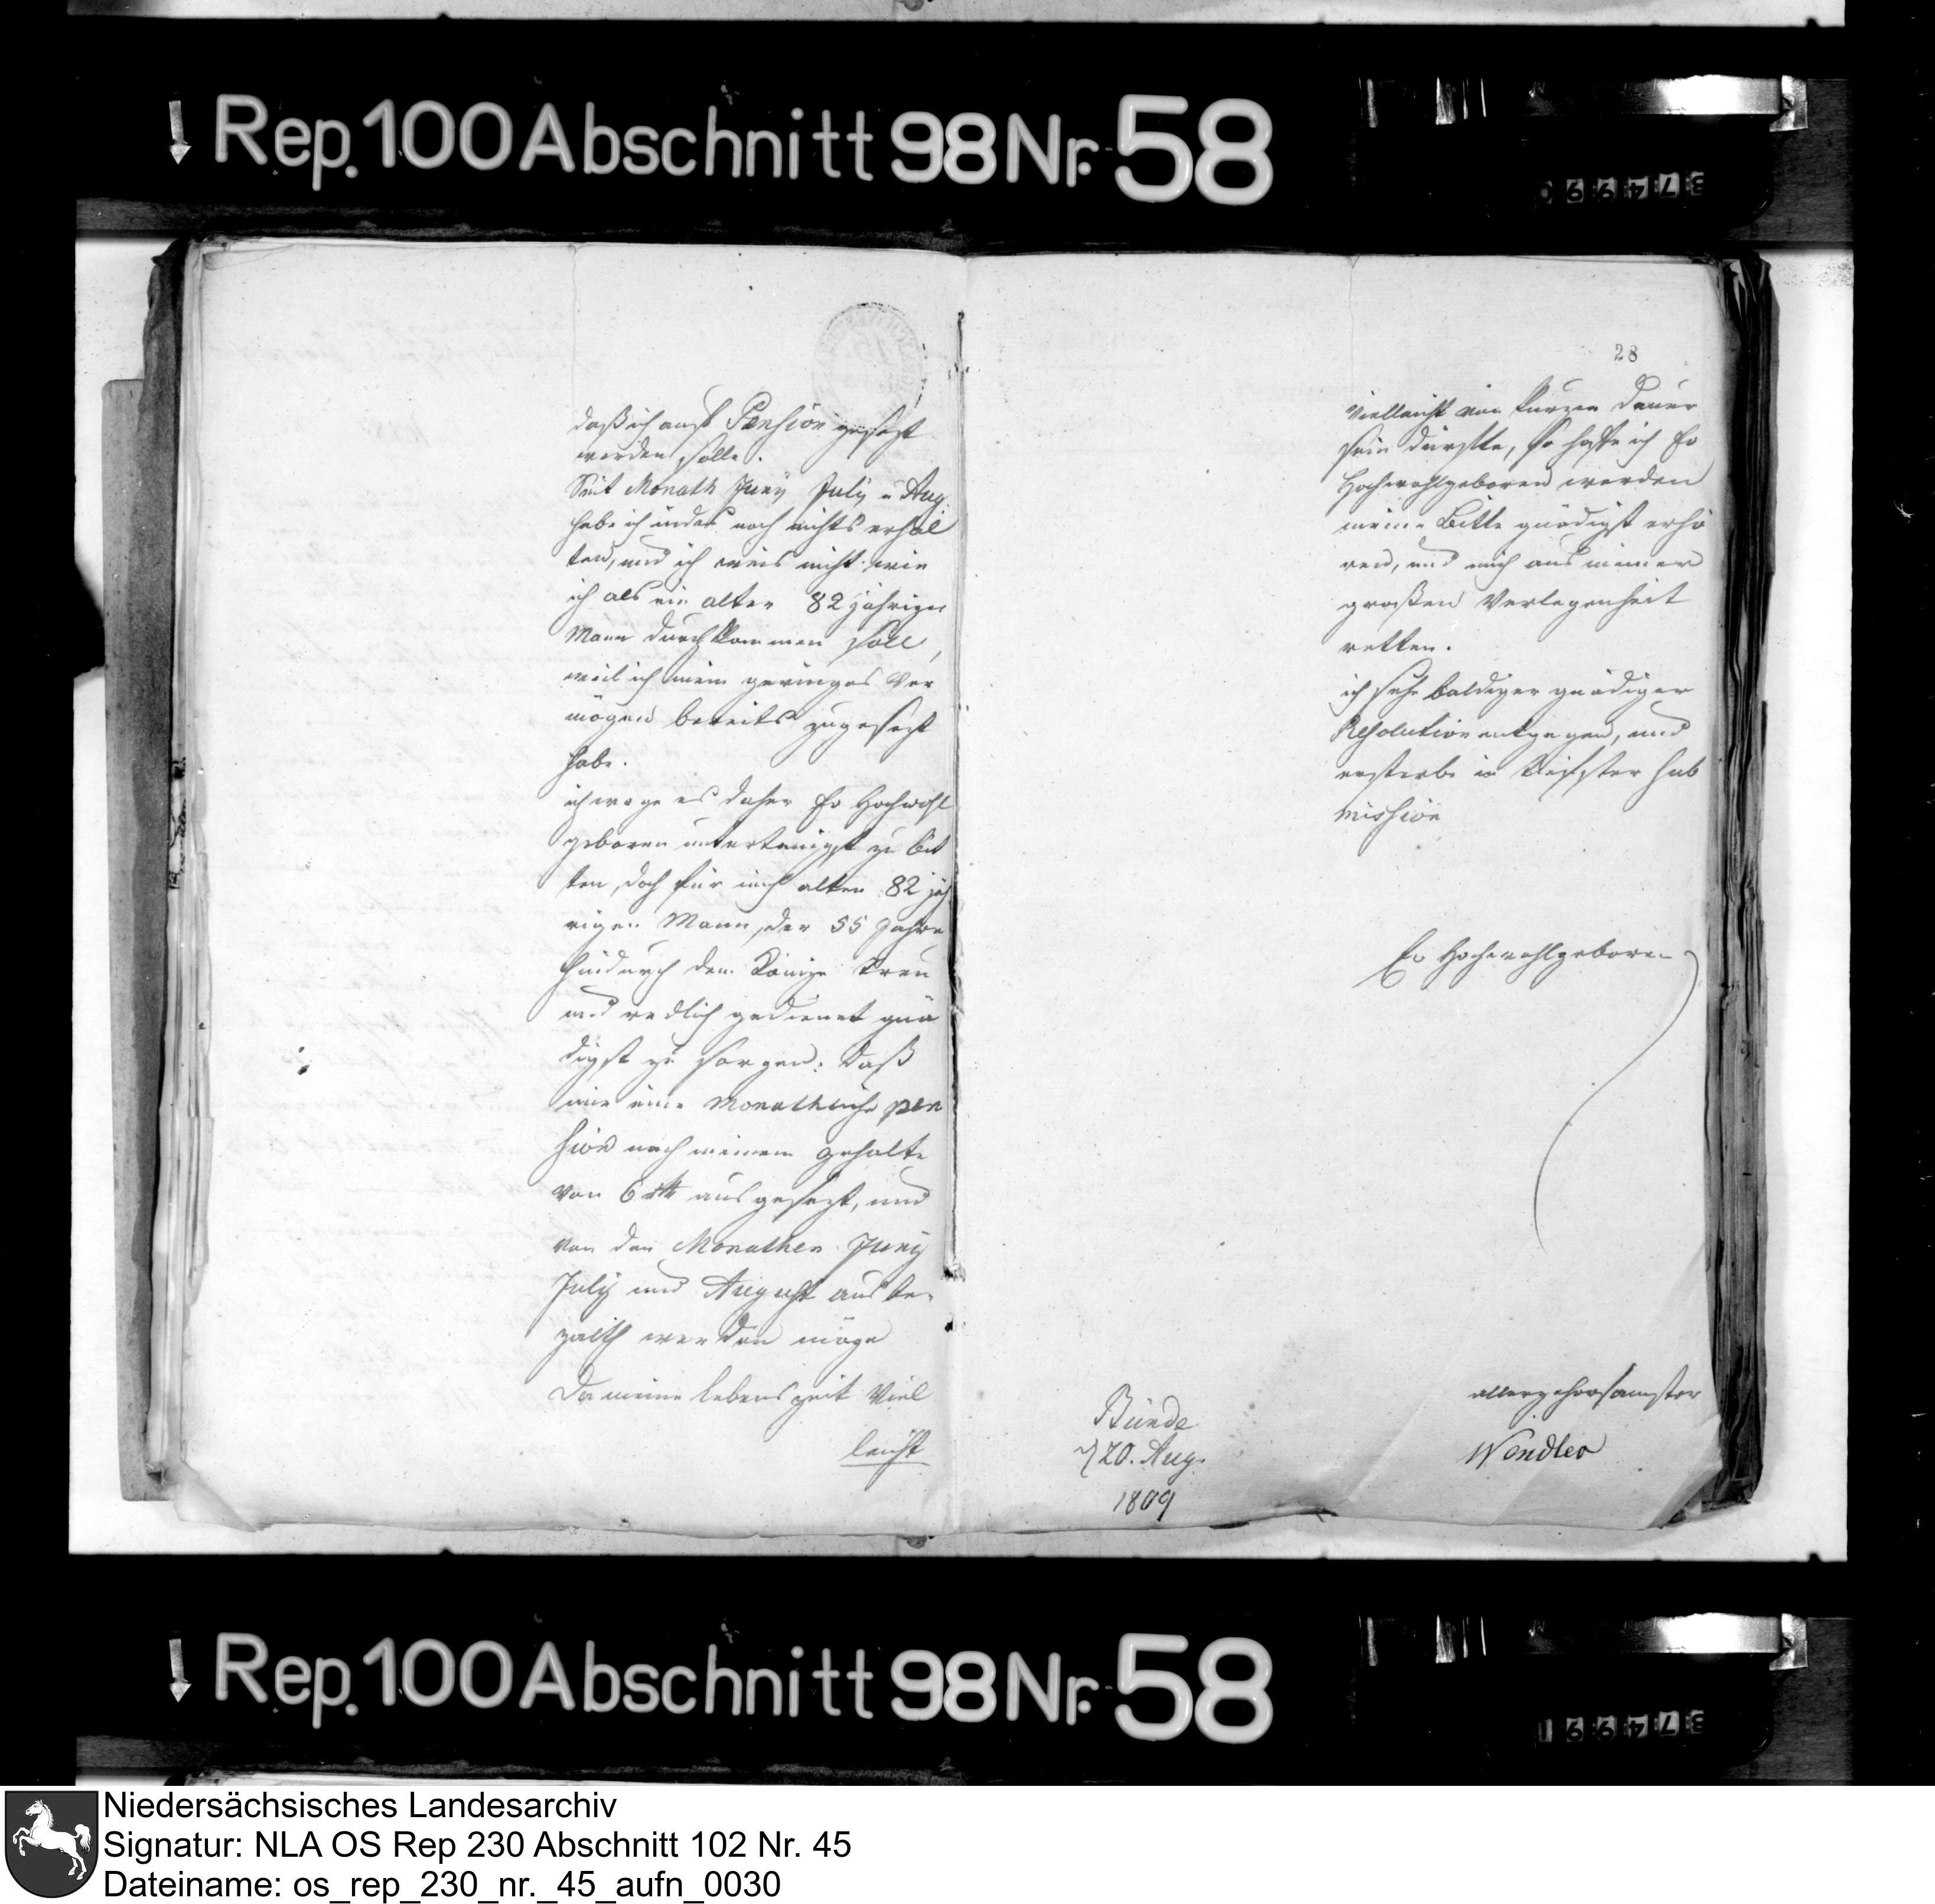 Rep. 100 Abschnitt 98 Nr. 58
374990
daß ich auf Pension gesezt
werden solle.
Seit Monath Juny July u Aug
habe ich indes noch nichts erhal
ten, und ich weis nicht wie
ich als ein alter 82 jähriger
Mann durchkommen soll,
weil ich mein geringes Ver
mögen bereits zugesezt
habe.
ich wage es daher Ew Hochwohl
geboren untertänigst zu bit
ten, doch für mich alten 82 jäh
rigen Mann, der 55 Jahre
hindurch dem Könige treu
und redlich gedienet gnä
digst zu sorgen: daß
mir eine Monathliche pen
sion nach meinem gehalte
von 6 rth ausgesezt, und
von den Monathen Juny
July und August aus be-
zalth werden möge
Da meine Lebenszeit Viel
leicht
28
vielleicht von kurzer Dauer
sein dürfte, so hoffe ich Ew
Hochwohlgeboren werden
meine Bitte gnädigst erhö
ren, und mich aus meiner
großen Verlegenheit
retten.
ich sehe baldiger gnädiger
Resolution entgegen, und
ersterbe in tiefster Sub
mission
Ew Hochwohlgeboren
allergehorsamster
Wendler
Bünde
20. Aug.
1809
Rep. 100 Abschnitt 98 Nr. 58
374991
Niedersächsisches Landesarchiv
Signatur: NLA OS Rep 230 Abschnitt 102 Nr. 45
Dateiname: os_rep_230_nr._45_aufn_0030